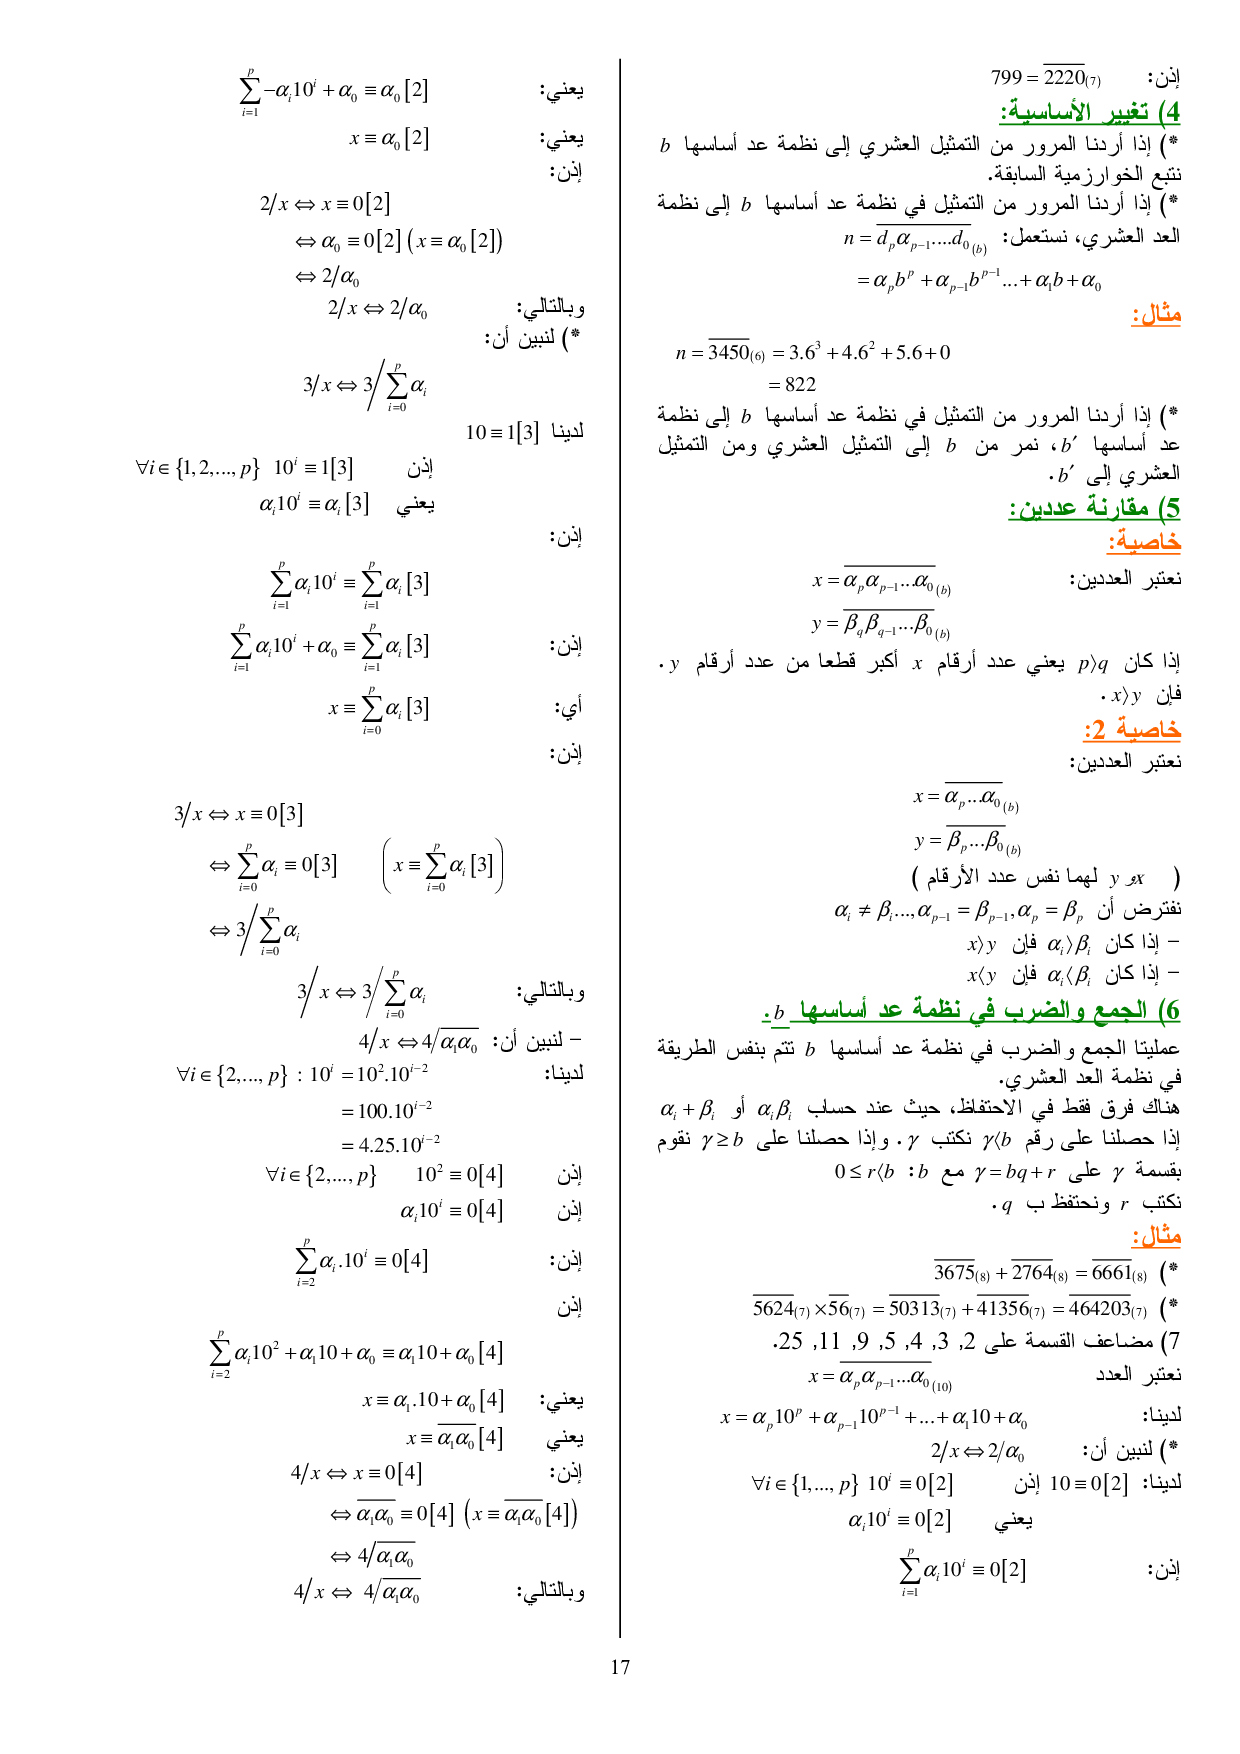 إذن: 799 = \overline{2220}_{(7)}
4) تغيير الأساسية:
*) إذا أردنا المرور من التمثيل العشري إلى نظمة عد أساسها b
نتبع الخوارزمية السابقة.
*) إذا أردنا المرور من التمثيل في نظمة عد أساسها b إلى نظمة
العد العشري، نستعمل: n = \overline{d_pα_{p-1}....d_0}_{(b)}
= α_p b^p + α_{p-1} b^{p-1} ... + α_1 b + α_0
مثال:
n = \overline{3450}_{(6)} = 3.6^3 + 4.6^2 + 5.6 + 0
= 822
*) إذا أردنا المرور من التمثيل في نظمة عد أساسها b إلى نظمة
عد أساسها b′، نمر من b إلى التمثيل العشري ومن التمثيل
العشري إلى b′.
5) مقارنة عددين:
خاصية:
نعتبر العددين: x = \overline{α_pα_{p-1}...α_0}_{(b)}
y = \overline{β_qβ_{q-1}...β_0}_{(b)}
إذا كان p⟩q يعني عدد أرقام x أكبر قطعا من عدد أرقام y.
فإن x⟩y.
خاصية 2:
نعتبر العددين:
x = \overline{α_p...α_0}_{(b)}
y = \overline{β_p...β_0}_{(b)}
( x و y لهما نفس عدد الأرقام )
نفترض أن α_i ≠ β_i...,α_{p-1} = β_{p-1},α_p = β_p
- إذا كان α_i⟩β_i فإن x⟩y
- إذا كان α_i⟨β_i فإن x⟨y
6) الجمع والضرب في نظمة عد أساسها b.
عمليتا الجمع والضرب في نظمة عد أساسها b تتم بنفس الطريقة
في نظمة العد العشري.
هناك فرق فقط في الاحتفاظ، حيث عند حساب α_iβ_i أو α_i + β_i
إذا حصلنا على رقم γ⟨b نكتب γ. وإذا حصلنا على γ ≥ b نقوم
بقسمة γ على b: γ = bq + r مع 0 ≤ r⟨b
نكتب r ونحتفظ ب q.
مثال:
*) \overline{3675}_{(8)} + \overline{2764}_{(8)} = \overline{6661}_{(8)}
*) \overline{5624}_{(7)} × \overline{56}_{(7)} = \overline{50313}_{(7)} + \overline{41356}_{(7)} = \overline{464203}_{(7)}
7) مضاعف القسمة على 2, 3, 4, 5, 9, 11, 25.
نعتبر العدد x = \overline{α_pα_{p-1}...α_0}_{(10)}
لدينا: x = α_p 10^p + α_{p-1} 10^{p-1} + ... + α_1 10 + α_0
*) لنبين أن: 2/x ⇔ 2/α_0
لدينا: 10 ≡ 0[2] إذن ∀i ∈ {1,..., p} 10^i ≡ 0[2]
يعني α_i 10^i ≡ 0[2]
إذن: \sum_{i=1}^{p} α_i 10^i ≡ 0[2]
يعني: \sum_{i=1}^{p} -α_i 10^i + α_0 ≡ α_0[2]
يعني: x ≡ α_0[2]
إذن:
2/x ⇔ x ≡ 0[2]
⇔ α_0 ≡ 0[2] (x ≡ α_0[2])
⇔ 2/α_0
وبالتالي: 2/x ⇔ 2/α_0
*) لنبين أن:
3/x ⇔ 3/\sum_{i=0}^{p} α_i
لدينا 10 ≡ 1[3]
إذن ∀i ∈ {1, 2,..., p} 10^i ≡ 1[3]
يعني α_i 10^i ≡ α_i[3]
إذن:
\sum_{i=1}^{p} α_i 10^i ≡ \sum_{i=1}^{p} α_i[3]
إذن: \sum_{i=1}^{p} α_i 10^i + α_0 ≡ \sum_{i=1}^{p} α_i[3]
أي: x ≡ \sum_{i=0}^{p} α_i[3]
إذن:
3/x ⇔ x ≡ 0[3]
⇔ \sum_{i=0}^{p} α_i ≡ 0[3] (x ≡ \sum_{i=0}^{p} α_i[3])
⇔ 3/\sum_{i=0}^{p} α_i
وبالتالي: 3/x ⇔ 3/\sum_{i=0}^{p} α_i
- لنبين أن: 4/x ⇔ 4/\overline{α_1α_0}
لدينا: ∀i ∈ {2,..., p} : 10^i = 10^2.10^{i-2}
= 100.10^{i-2}
= 4.25.10^{i-2}
إذن ∀i ∈ {2,..., p} 10^2 ≡ 0[4]
إذن α_i 10^i ≡ 0[4]
إذن: \sum_{i=2}^{p} α_i.10^i ≡ 0[4]
إذن
\sum_{i=2}^{p} α_i 10^2 + α_1 10 + α_0 ≡ α_1 10 + α_0[4]
يعني: x ≡ α_1.10 + α_0[4]
يعني x ≡ \overline{α_1α_0}[4]
إذن: 4/x ⇔ x ≡ 0[4]
⇔ \overline{α_1α_0} ≡ 0[4] (x ≡ \overline{α_1α_0}[4])
⇔ 4/\overline{α_1α_0}
وبالتالي: 4/x ⇔ 4/\overline{α_1α_0}
17